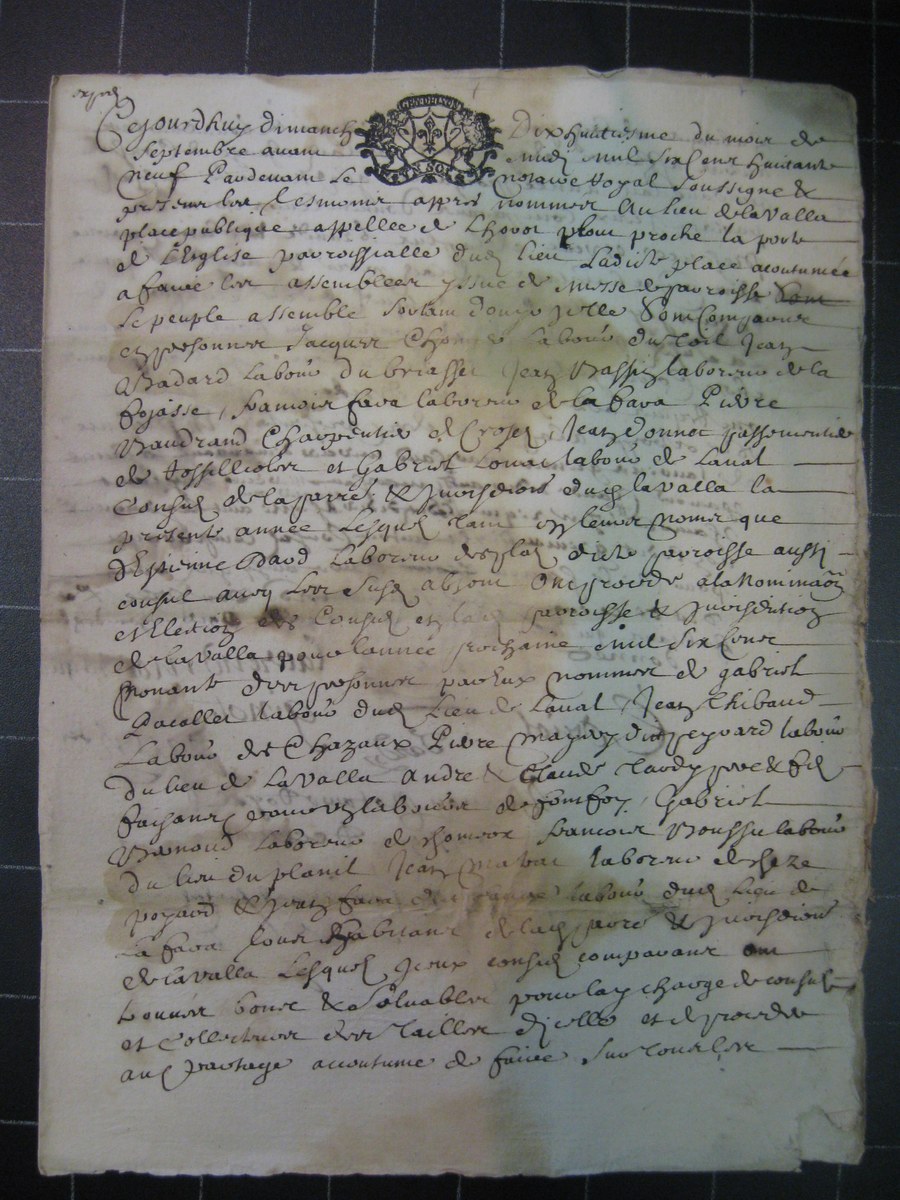 expedi
GEN DE LYON
Cejourdhuy dimanche Dixhuitiesme du mois de
Septembre avant midy mil six cens huitante
neuf Pardevant le notaire Royal soussigne &
presens les tesmoins appres nommes Au lieu de lavalla
place publique appellee de Lhorot proche la porte
de L'Eglise parroissialle dud lieu Ladicte place acoutumee
a faire les assemblees yssue de messe de parroisse
Le peuple assemble sortant d'ycelle Sont Comparus
en personnes Jacques labour du Toil Jean
Badard Labour du briassi Jean Massin laboreur de la
fojasse, francois fara laboreur de la fara Pierre
Baudrand Charpentier de Crozet, Jean Donnet passementie
de tossillieles et Gabriel labour de Lanal
Consuls de la parre & jurisdiōn dud lavalla la
presente année Lesquels tant en leurs noms que
d'Estienne labereur dicte parroisse aussi
consul avec Les susd absent Ont procede a la Nommaōn
et Election des Consuls en lad parroisse & jurisdiction
de lavalla pour lannée prochaine mil six Cens
nonante des personnes par Eux nommes de gabriel
Pacallet labour dud Lieu de Lanal, Jean Thibaud
Labour des Chazaux Pierre dit peyvard labour
du lieu de Lavalla Andre & Claude Tardy pere & fils
faisans labours de fonfoy, Gabriel
laboreur de francois Roussu labour
du lieu du planil Jean Matrat laboreur de cheze
poyard & Jean fara labour dud Lieu de
La fara tous habitans de lad parre & jurisdiōn
de lavalla Lesquels yceux consuls comparans ont
trouvés bons & Solvables pour lad charge de consuls
et Collecteurs des tailles d'icelle et de proceder
au partage acoutume de faire sur tous les